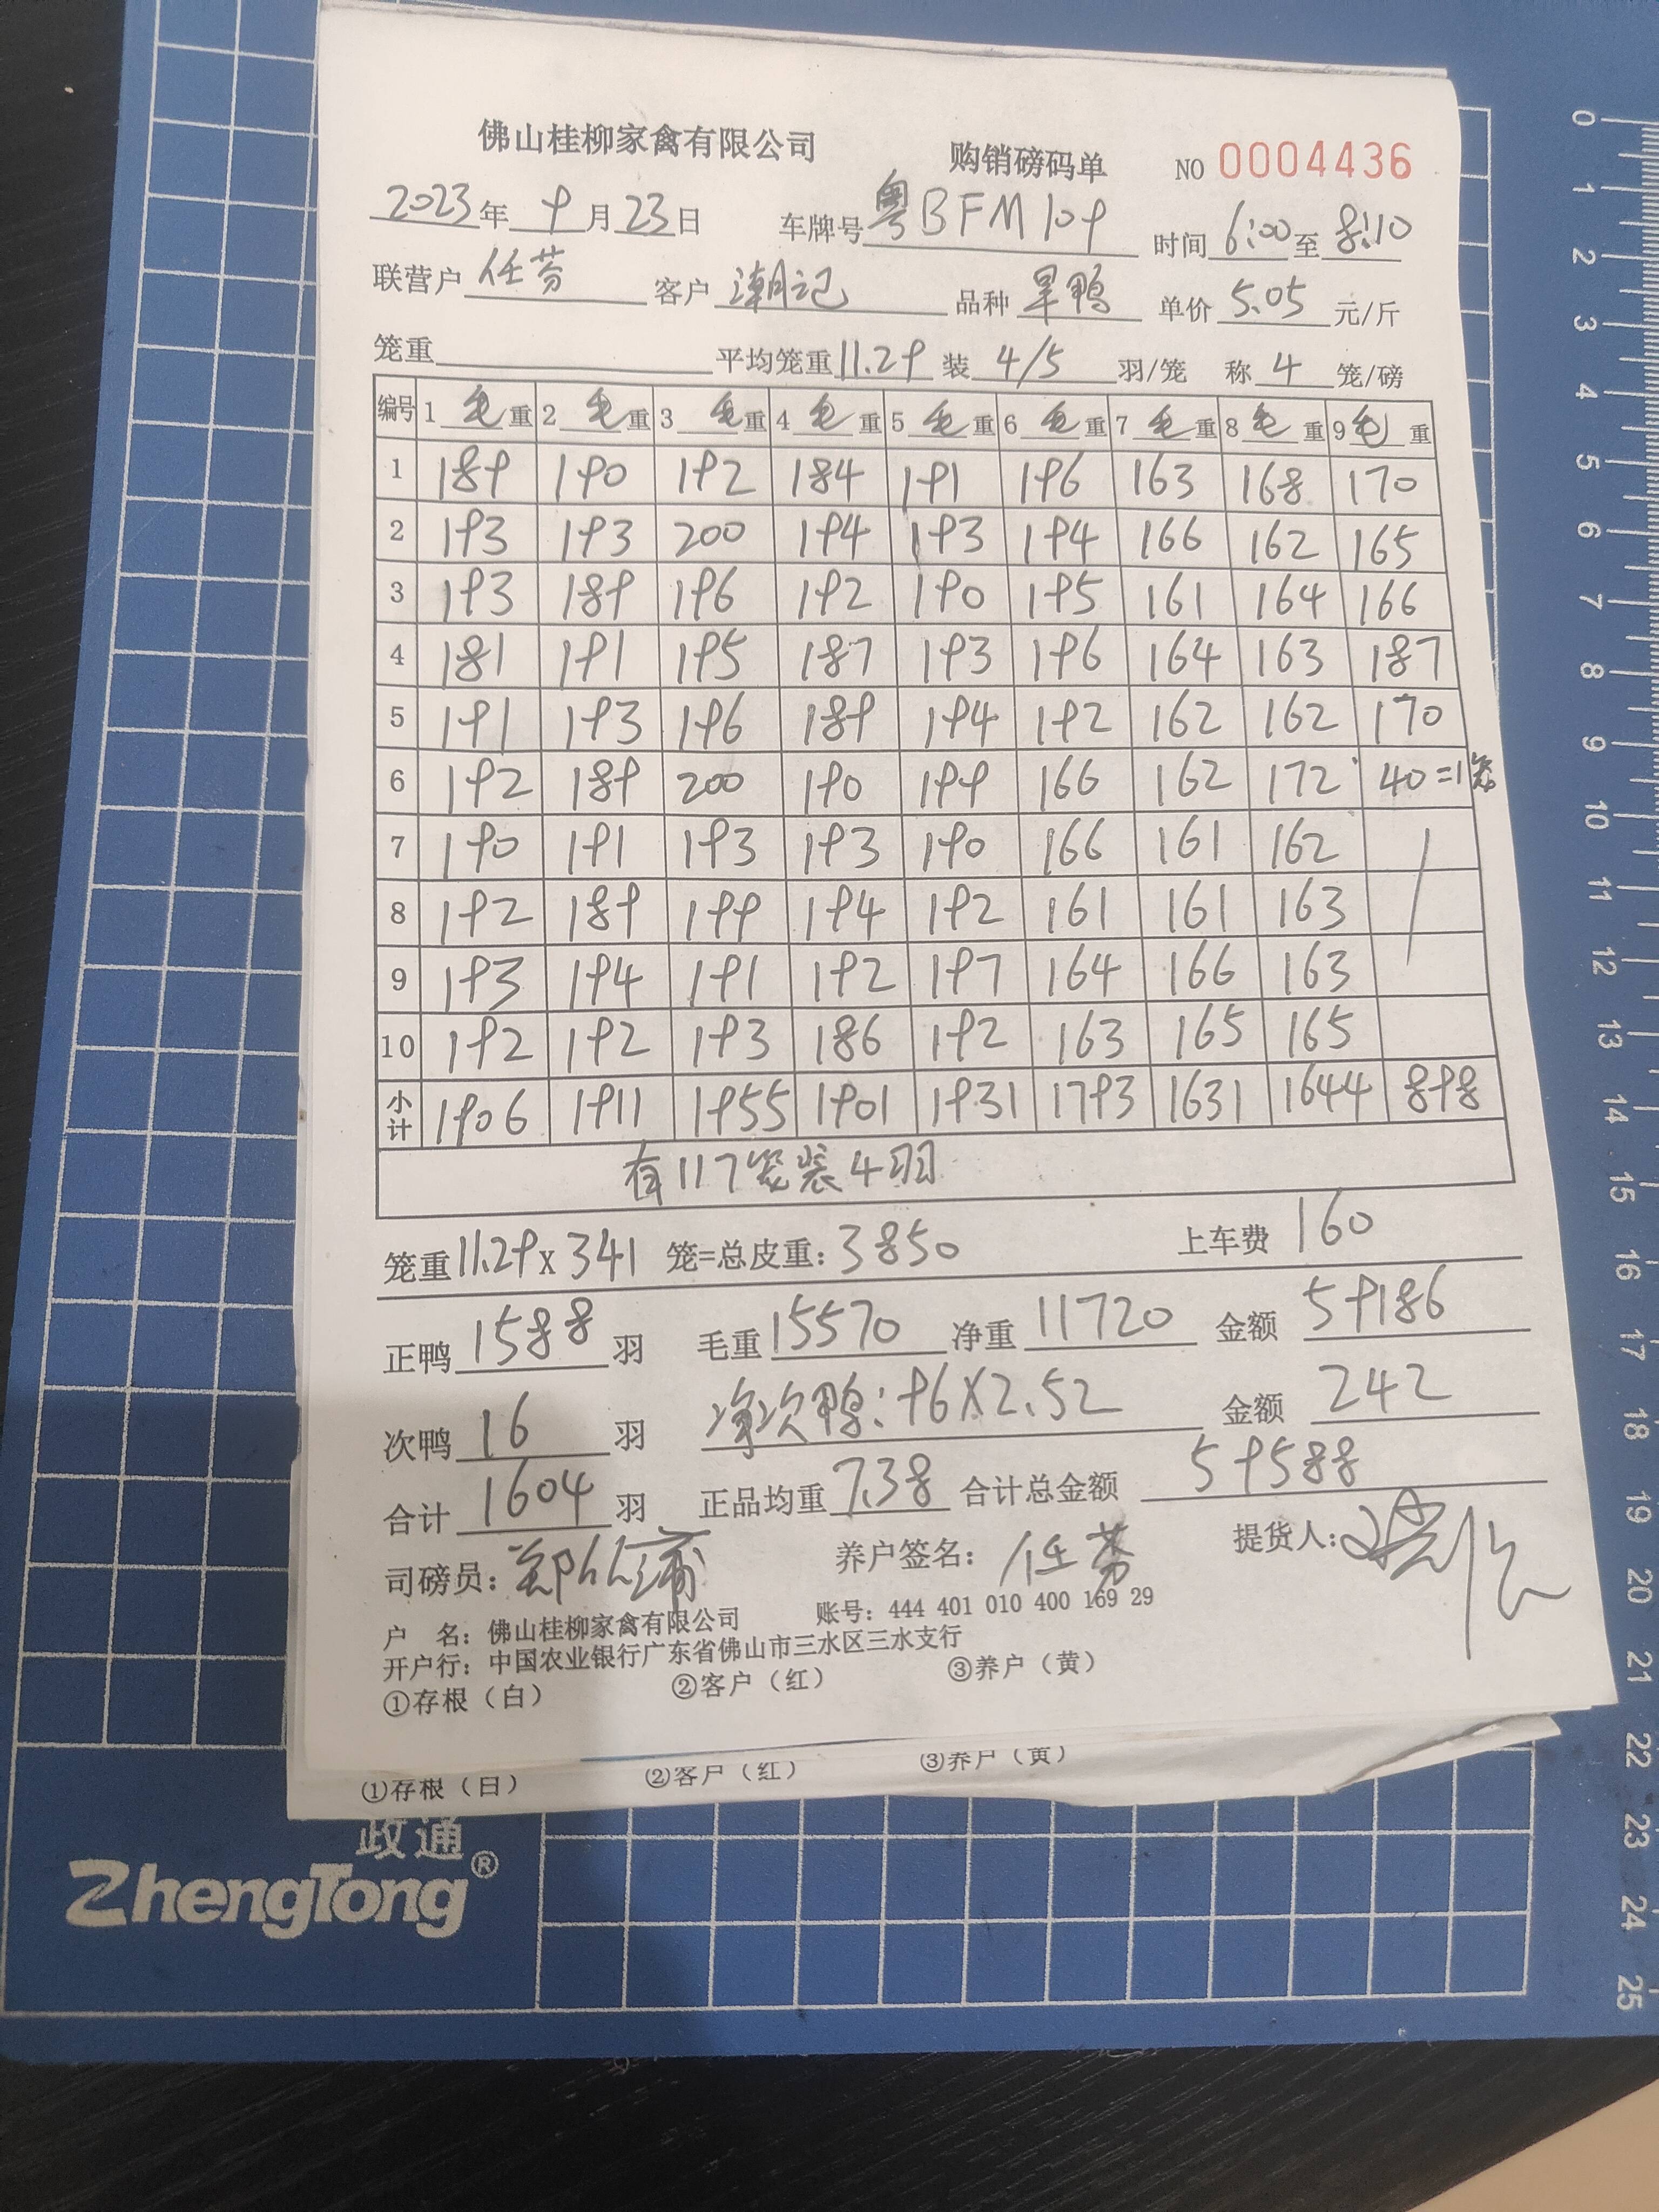 佛山桂柳家禽有限公司 购销磅码单 NO 0004436
2023年 9月23日 车牌号 粤BFM109 时间 6:00至 8:10
联营户 任芬 客户 潮记 品种 旱鸭 单价 5.05 元/斤
笼重 平均笼重11.29 装 4/5 羽/笼 称 4 笼/磅
编号 1 毛重 2 毛重 3 毛重 4 毛重 5 毛重 6 毛重 7 毛重 8 毛重 9 毛重
1 189 190 192 184 191 196 163 168 170
2 193 193 200 194 193 194 166 162 165
3 193 189 196 192 190 195 161 164 166
4 181 191 195 187 193 196 164 163 187
5 191 193 196 189 194 192 162 162 170
6 192 189 200 190 199 166 162 172 40=1笼
7 190 191 193 193 190 166 161 162
8 192 189 199 194 192 161 161 163
9 193 194 191 192 197 164 166 163
10 192 192 193 186 192 163 165 165
小计 1906 1911 1955 1901 1931 1793 1631 1644 898
有117笼装4羽
笼重11.29x341 笼=总皮重: 3850 上车费 160
正鸭 1588 羽 毛重 15570 净重 11720 金额 59186
次鸭 16 羽 净次鸭: 96X2.52 金额 242
合计 1604 羽 正品均重 7.38 合计总金额 59588
司磅员: 养户签名: 任芬 提货人:
户 名: 佛山桂柳家禽有限公司 账号: 444 401 010 400 169 29
开户行: 中国农业银行广东省佛山市三水区三水支行
①存根(白) ②客户(红) ③养户(黄)
①存根(白) ②客户(红) ③养户(黄)
政通
ZhengTong®
0
1
2
3
4
5
6
7
8
9
10
11
12
13
14
15
16
17
18
19
20
21
22
23
24
25